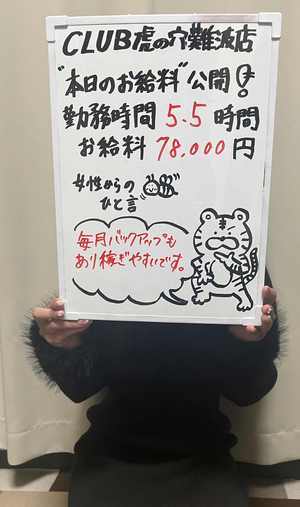 CLUB虎の穴難波店
"本日のお給料"公開!
勤務時間 5.5 時間
お給料 78,000円
女性からの
ひと言
毎月バックアップも
あり稼ぎやすいです。